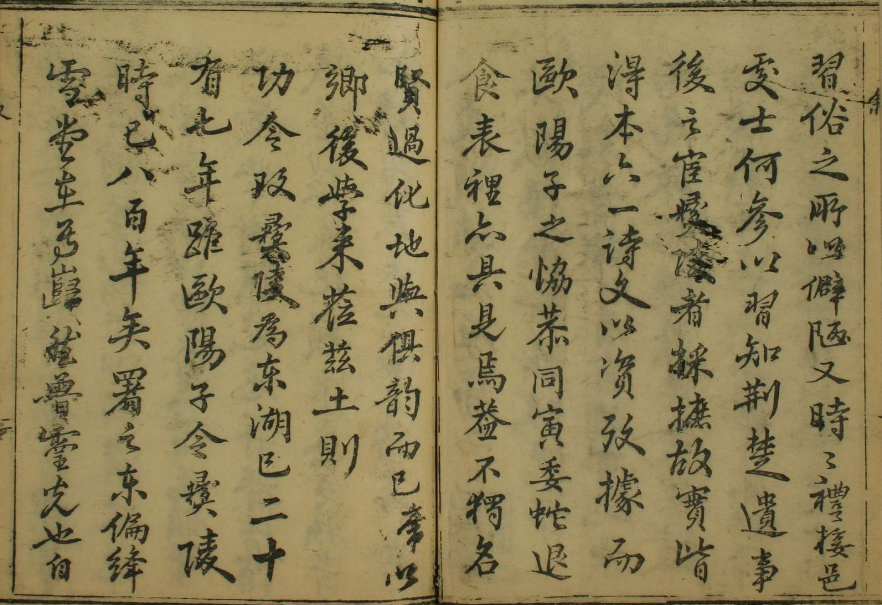 習俗之所以僻陋又時〻禮接邑
處士何參以習知荆楚遺事
後之宦彛陵者採摭故實皆
得本六一詩文以資攷據而
歐陽子之恊恭同寅委蛇退
食表裡亦具是焉葢不獨名
賢過化地與俱韵而已以
鄉後學来莅茲土則
功令改彛陵為东湖已二十
有七年距歐陽子令彛陵
時已八百年矣署之东偏絳
雪堂在焉巋然魯靈光也自